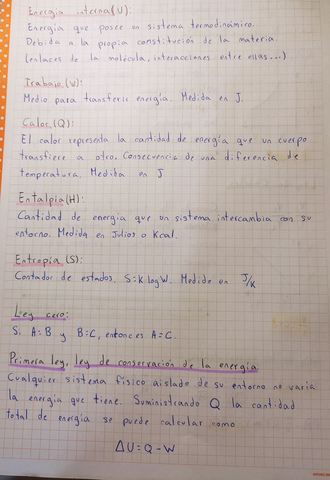 Energía interna(U):
Energía que posee un sistema termodinámico.
Debido a la propia constitución de la materia.
(enlaces de la molécula, interacciones entre ellas...)
Trabajo(W):
Medio para transferir energía. Medida en J.
Calor(Q):
El calor representa la cantidad de energía que un cuerpo
transfiere a otro. Consecuencia de una diferencia de
temperatura. Medida en J
Entalpía(H):
Cantidad de energía que un sistema intercambia con su
entorno. Medida en Julios o Kcal.
Entropía(S):
Contador de estados. S=k logW. Medido en J/K
Ley cero:
Si A=B y B=C, entonces A=C.
Primera ley, ley de conservación de la energía
Cualquier sistema físico aislado de su entorno no varía
la energía que tiene. Suministrando Q la cantidad
total de energía se puede calcular como
ΔU=Q-W